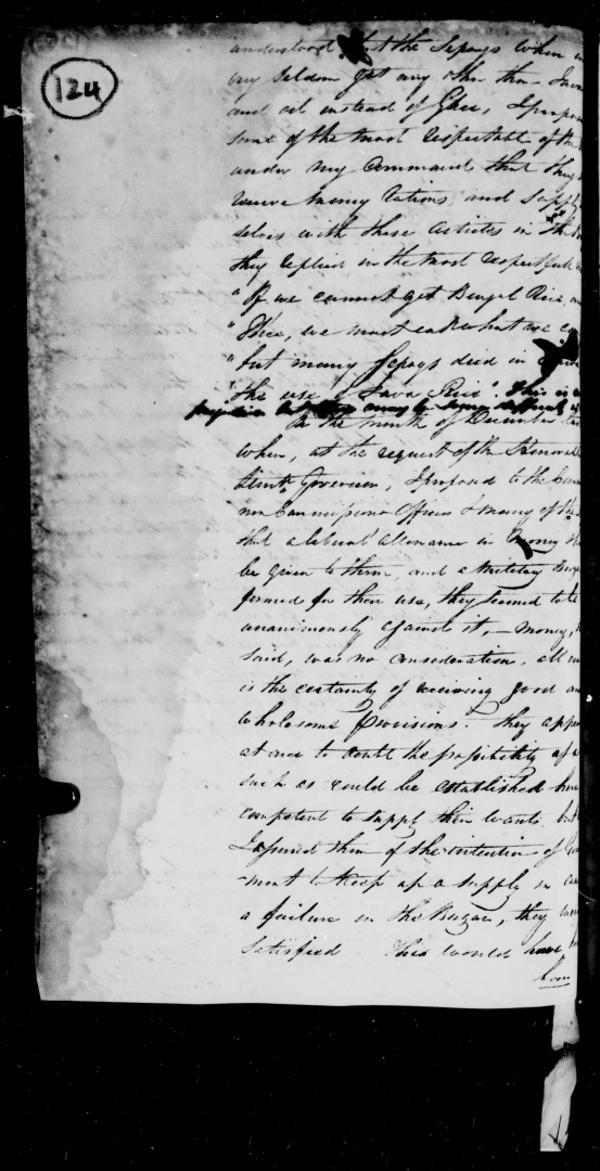 124
understood that the Sepoys when
any seldom get any other than Java
and oil instead of Ghee, I propo
some of the most respectable of the
under my Command that they
receive money rations, and supply
selves with these articles in the
they replied in the most respectful
"If we cannot get Bengal Rice
"Ghee, we must eat what we c
"but many Sepoys died in
"the use of Java Rice". This is
In the month of December
when, at the request of the Honorable
tenant Governor, I proposed to the Com
non Commissioned Officers & many of the
that a liberal allowance in money
be given to them, and a Military
formed for their use, they seemed to be
unanimously against it, – money,
said, was no consideration, all
is the certainty of receiving good an
wholesome Provisions. They appe
at once to doubt the possibility of a
such as could be established here
competent to supply their wants, but
I assured them of the intention of Gov
-ment to keep up a supply in case
a failure in the Bazar, they were
satisfied This would have